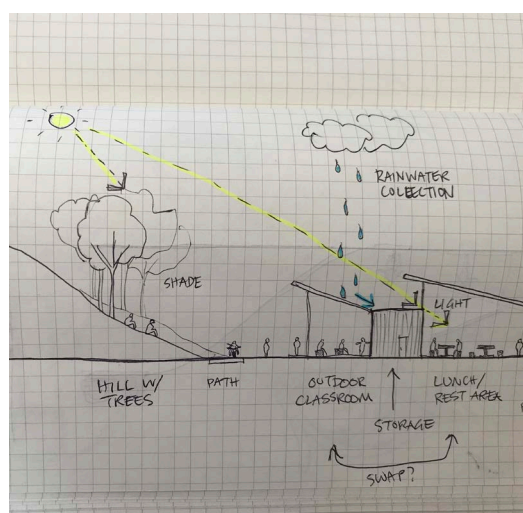 RAINWATER
COLLECTION
SHADE
LIGHT
HILL W/
TREES
PATH
OUTDOOR
CLASSROOM
LUNCH/
REST AREA
STORAGE
SWAP?